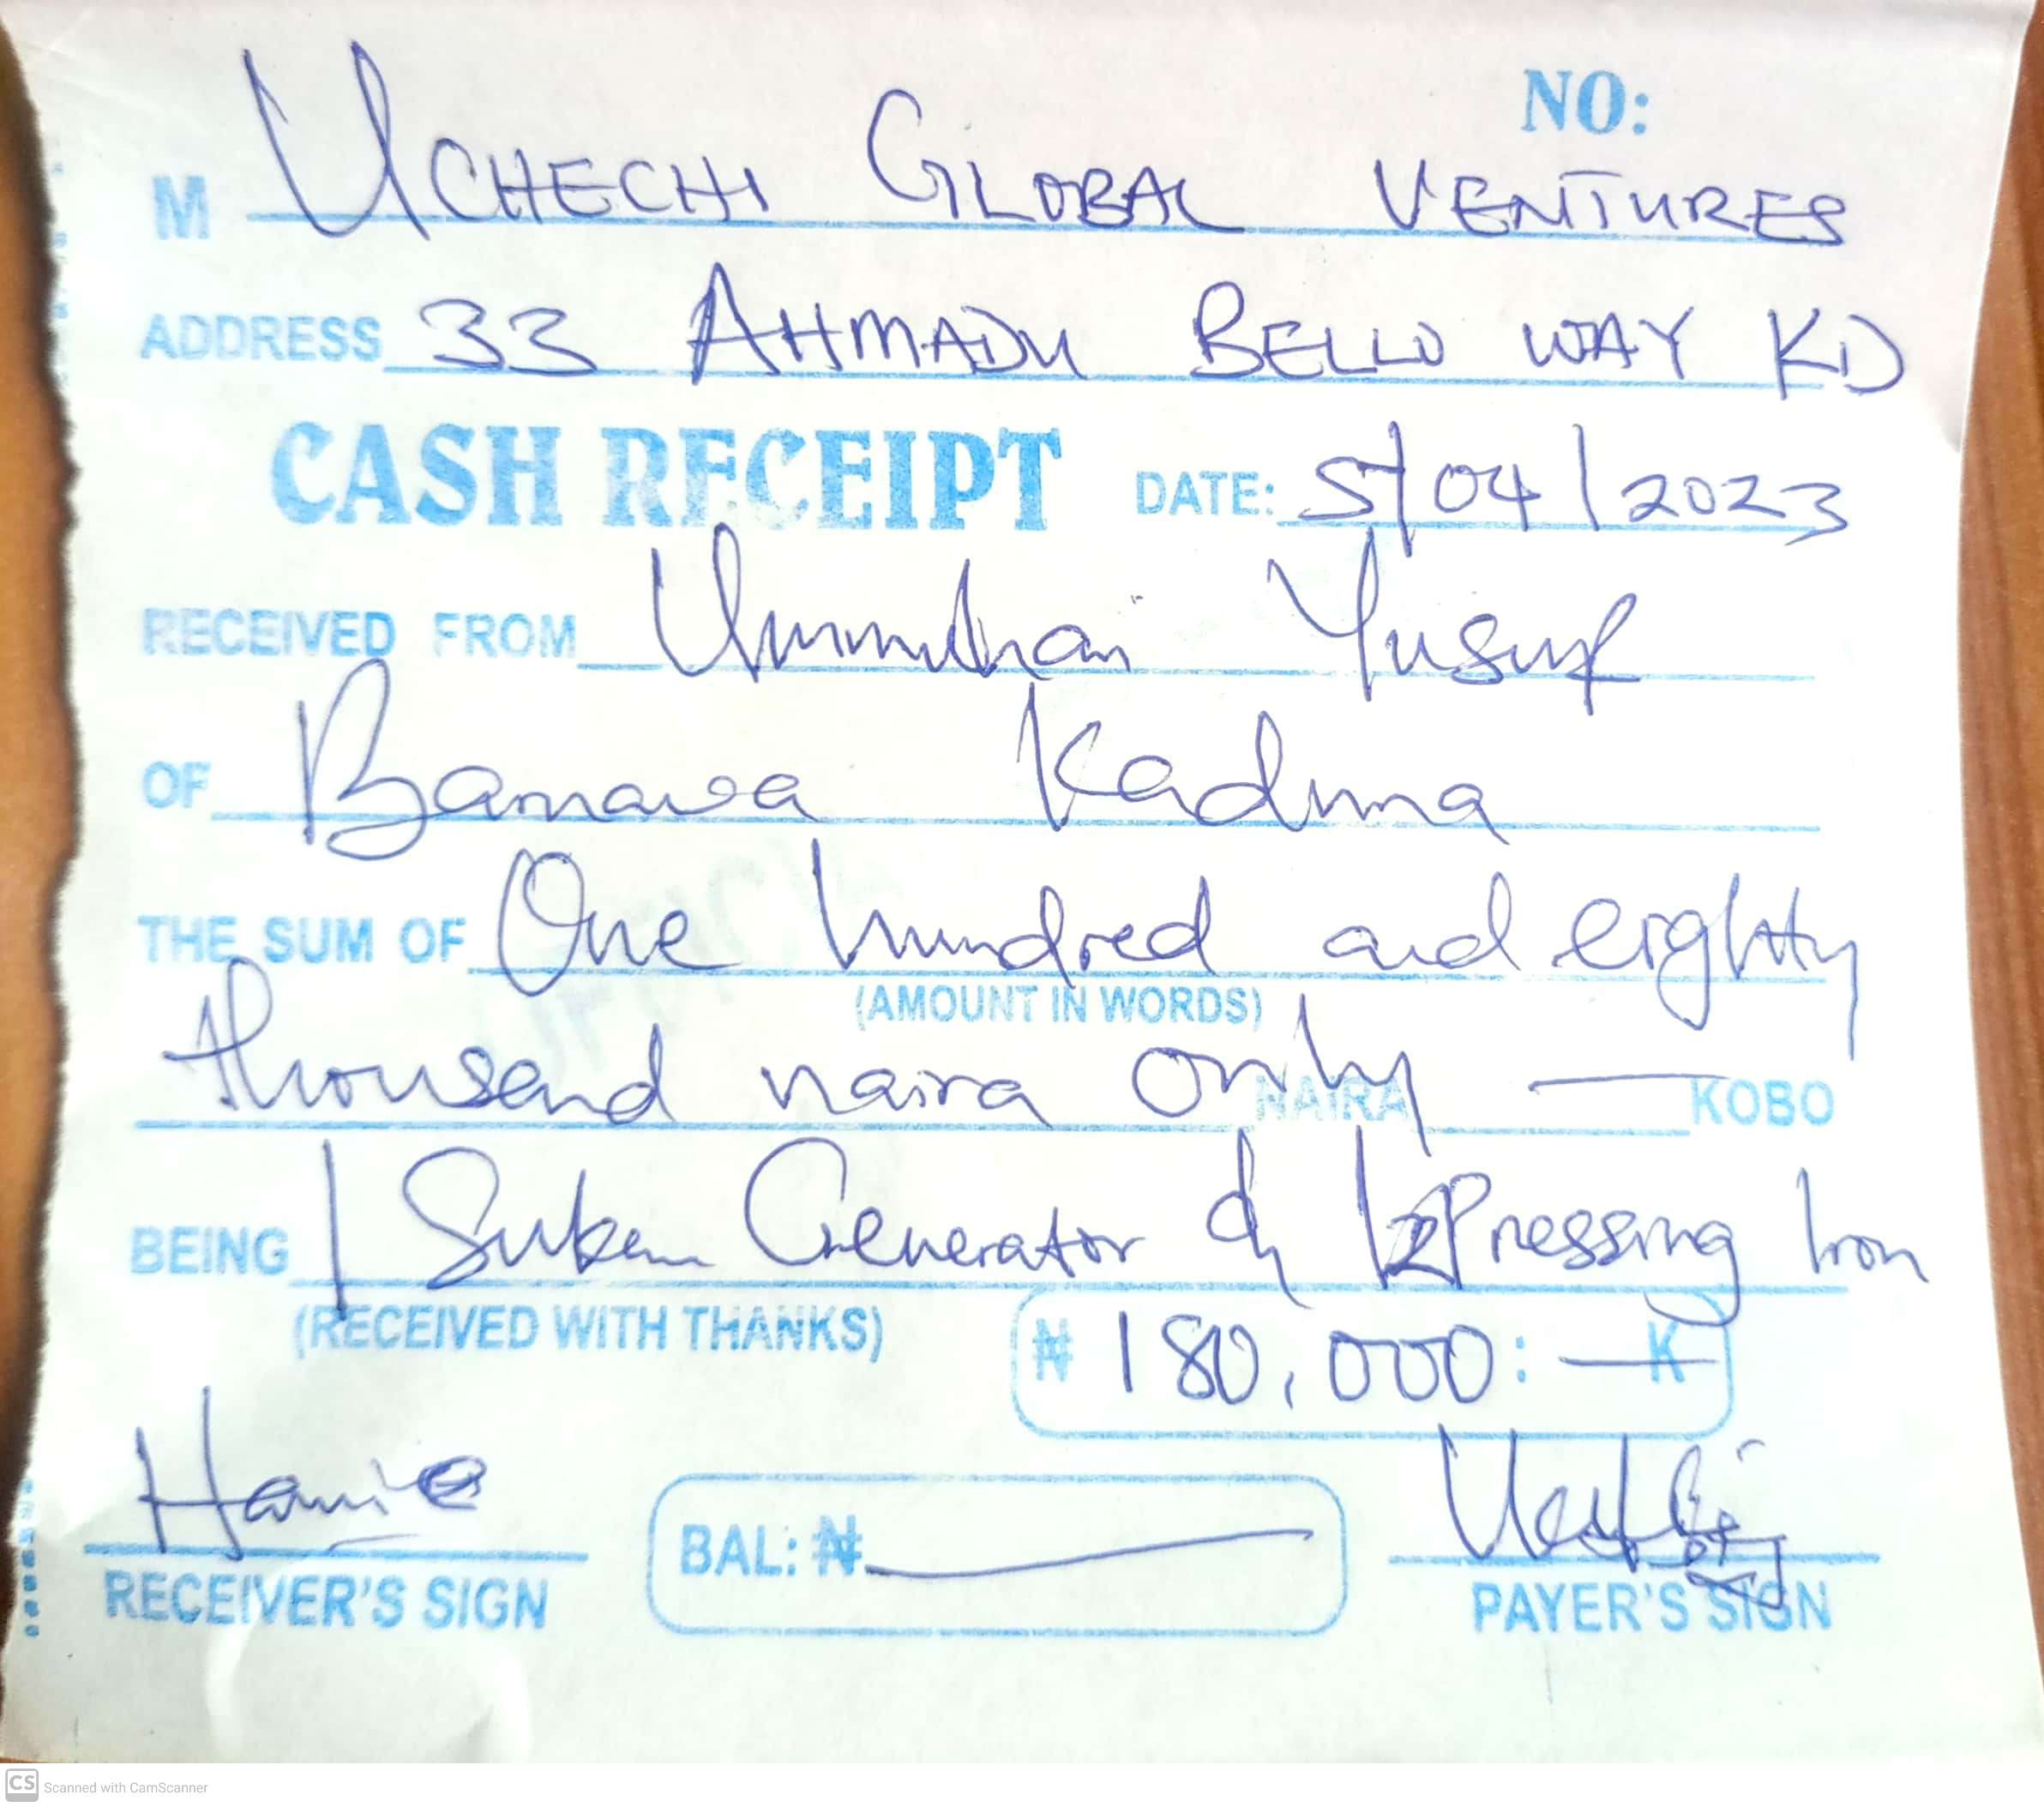 NO:
M UCHECHI GLOBAL VENTURES
ADDRESS 33 AHMADU BELLO WAY KD
CASH RECEIPT DATE: 5/04/2023
RECEIVED FROM Ummulhai Yusuf
OF Barnawa Kaduna
THE SUM OF One hundred and eighty
(AMOUNT IN WORDS)
thousand naira only NAIRA — KOBO
BEING 1 Suken Generator & Pressing Iron
(RECEIVED WITH THANKS) ₦ 180,000: — K
BAL: ₦ —
RECEIVER'S SIGN PAYER'S SIGN
CS Scanned with CamScanner